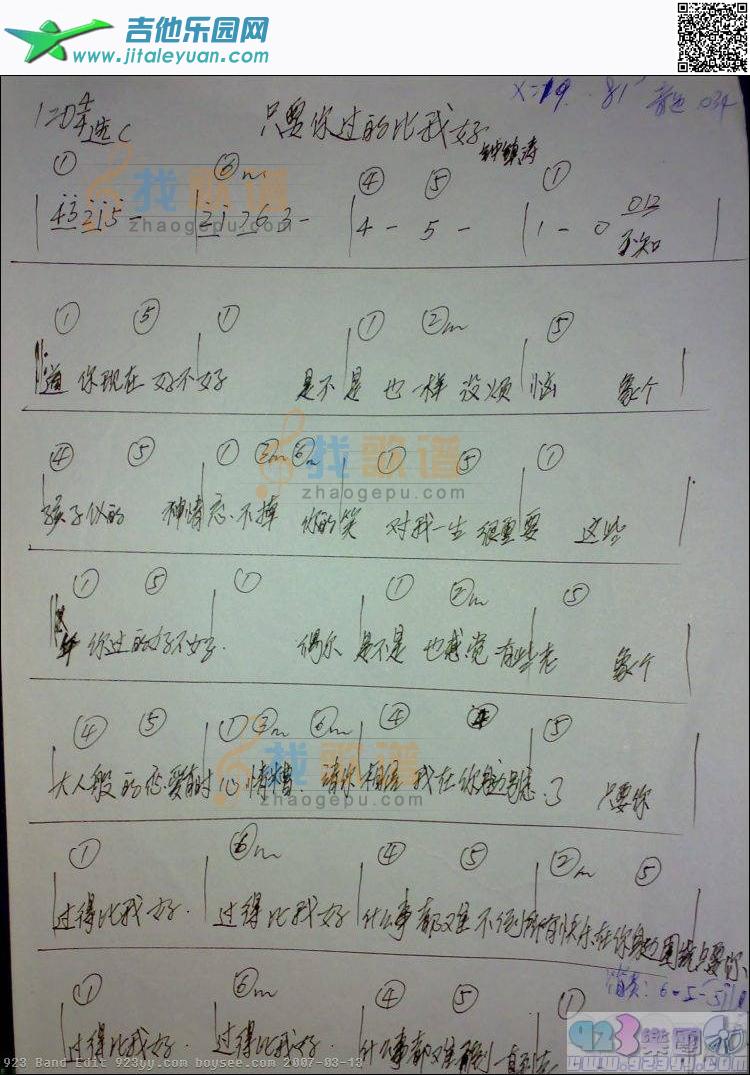 吉他乐园网
www.jitaleyuan.com
1=D 4/4 选C
只要你过的比我好
钟镇涛
X=19. 81 音色 034
① ⑥m ④ ⑤ ①
4 3 2 1 5 - 2 1 7 6 3 - 4 - 5 - 1 - 0 012
不知
① ⑤ ① ① ②m ⑤
道 你现在 好不好 是不是 也一样 没烦恼 象个
④ ⑤ ① ②m ⑥m ① ⑤ ①
孩子似的 神情忘不掉 你的笑 对我一生 很重要 这些
① ⑤ ① ① ②m ⑤
年 你过的好不好 偶尔 是不是 也感觉 有些老 象个
④ ⑤ ① ③m ⑥m ④ ④ ⑤
大人般的恋爱有时心情糟. 请你相信 我在你身边别忘了 只要你
① ⑥m ④ ⑤ ②m ⑤
过得比我好. 过得比我好 什么事都难不倒所有快乐在你身边围绕只要你
① ⑥m ④ ⑤ ①
过得比我好. 过得比我好. 什么事都难不倒 一直到老
找歌谱
zhaogepu.com
找歌谱
zhaogepu.com
找歌谱
zhaogepu.com
923 Band Edit 923yy.com boysee.com 2007-03-13
923樂園
www.923yy.com